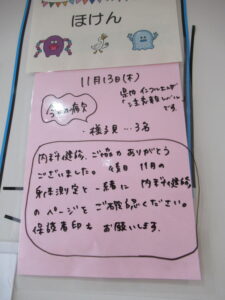 ほけん
11月13日(木)
県内 インフルエンザ
「注意報レベル」
です。
今日の病欠
・様子見…3名
内科健診、ご協力ありがとう
ございました。後日 11月の
身体測定と一緒に 内科健診
のページをご確認ください。
保護者印も お願いします。